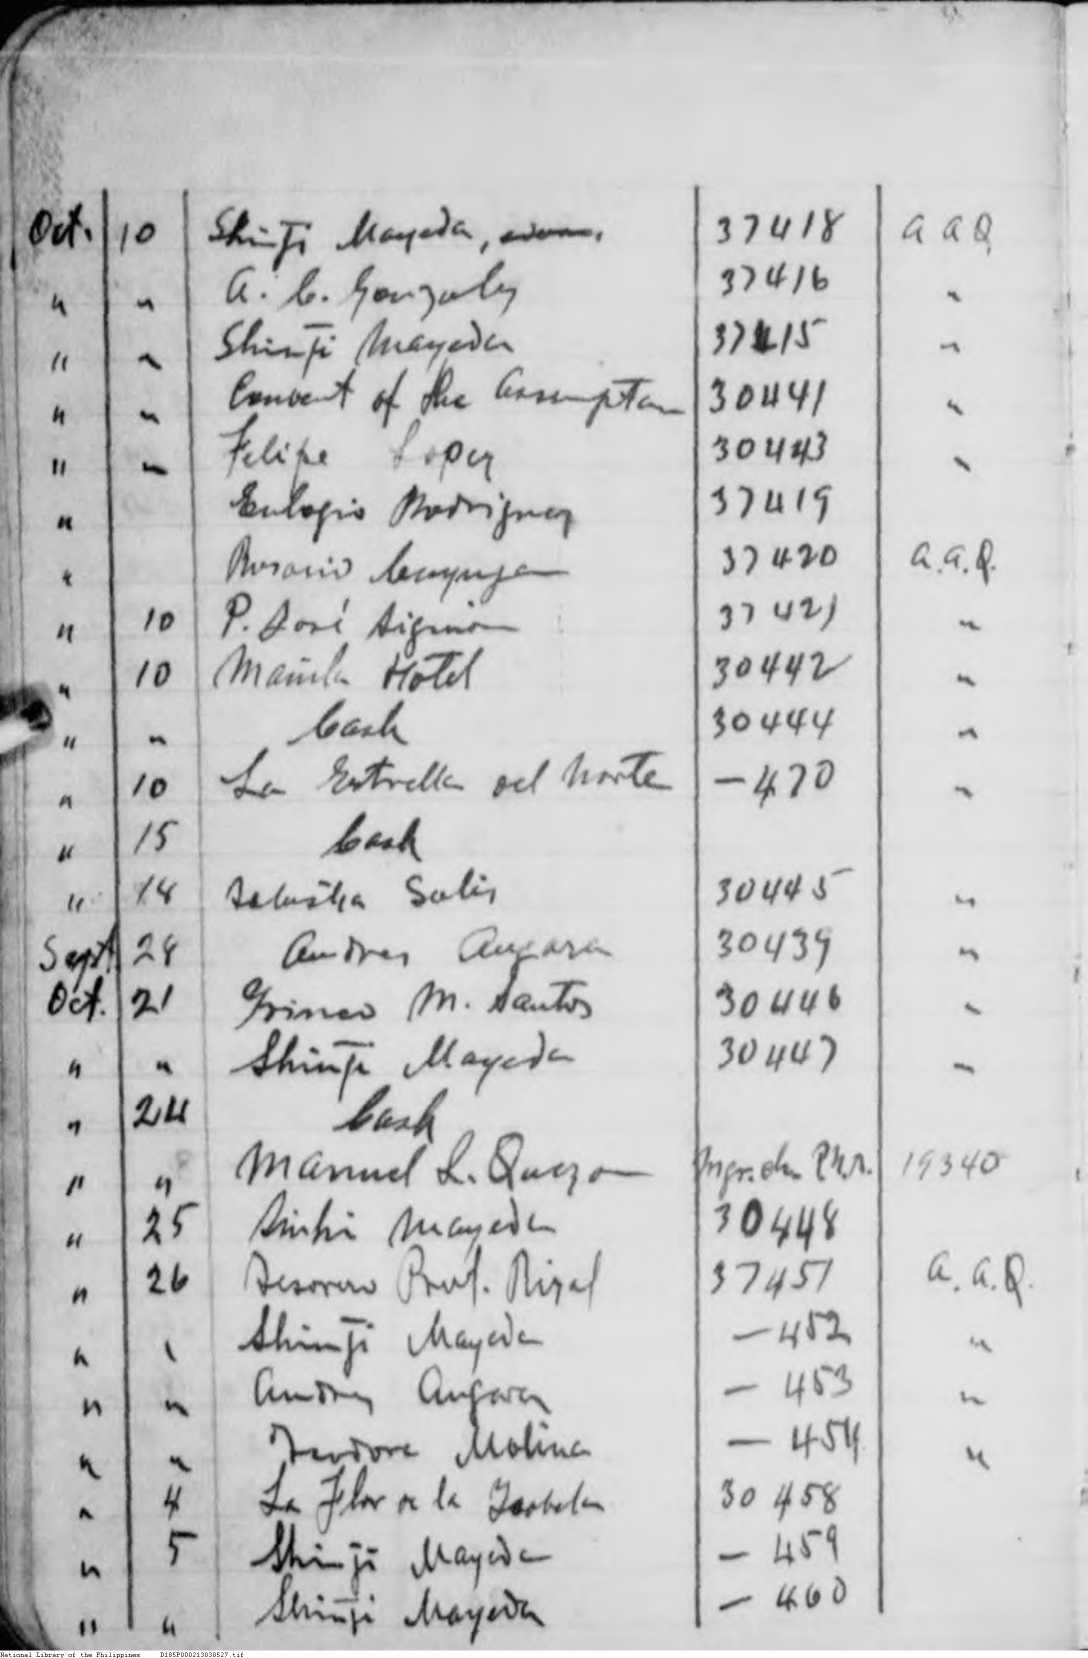 Oct. 10 Shinji Mayeda, 37418 A A Q
" " A. C. Gonzales 37416 "
" " Shinji Mayeda 37415 "
" " Convent of the Assumption 30441 "
" " Felipe Lopez 30443 "
" Eulogio Rodriguez 37419
" Rosario 37420 A.A.Q.
" 10 P. José 37421 "
" 10 Manila Hotel 30442 "
" " Cash 30444 "
" 10 La Estrella del Norte —470 "
" 15 Cash
" 18 Solis 30445 "
Sept. 28 Andres Angara 30439 "
Oct. 21 M. Santos 30446 "
" " Shinji Mayeda 30447 "
" 24 Cash
" " Manuel L. Quezon 19340
" 25 Mayeda 30448
" 26 Tesorero Prov. Rizal 37451 A.A.Q.
" " Shinji Mayeda —452 "
" " Andres Angara — 453 "
" " Teodora Molina — 454 "
" 4 La Flor de la Isabela 30458
" 5 Shinji Mayeda — 459
" " Shinji Mayeda — 460
National Library of the Philippines D185P000213030527.tif